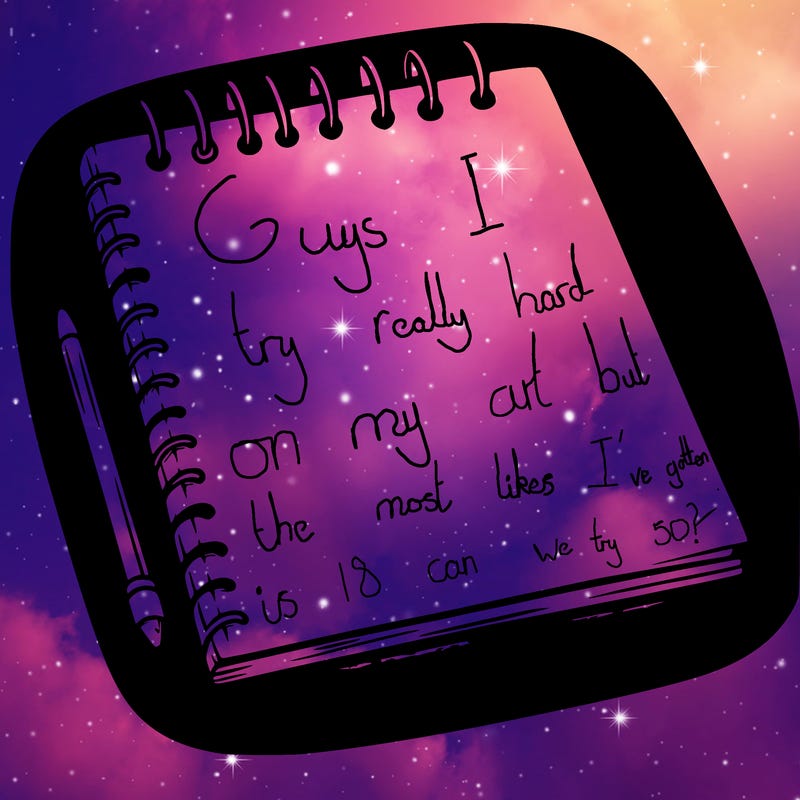 Guys I
try really hard
on my art but
the most likes I've gotten
is 18 can we try 50?